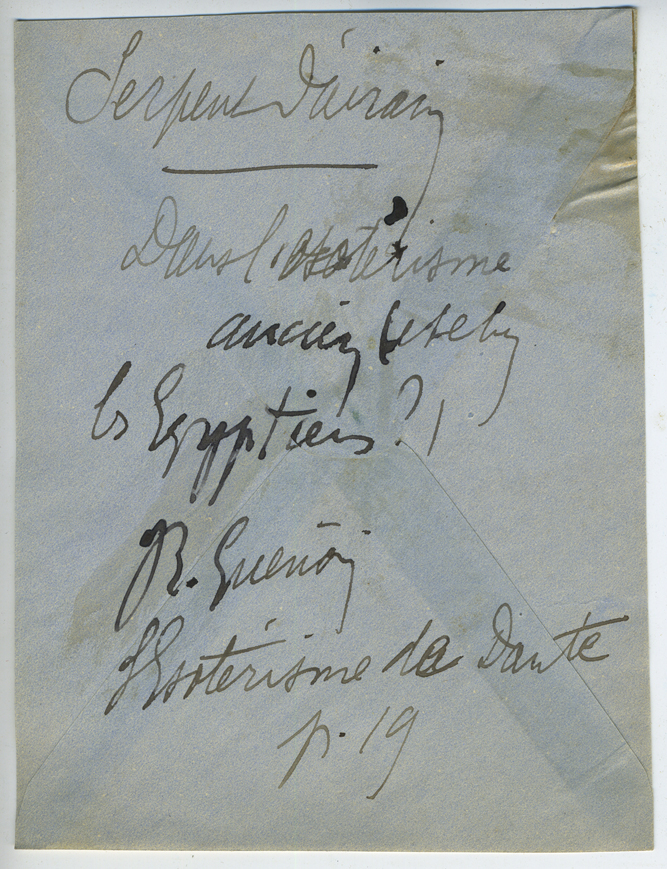 Serpent d'airain
Dans l'ésotérisme
ancien (et chez
les Egyptiens ?)
R. Guénon
l'Esotérisme de Dante
p. 19